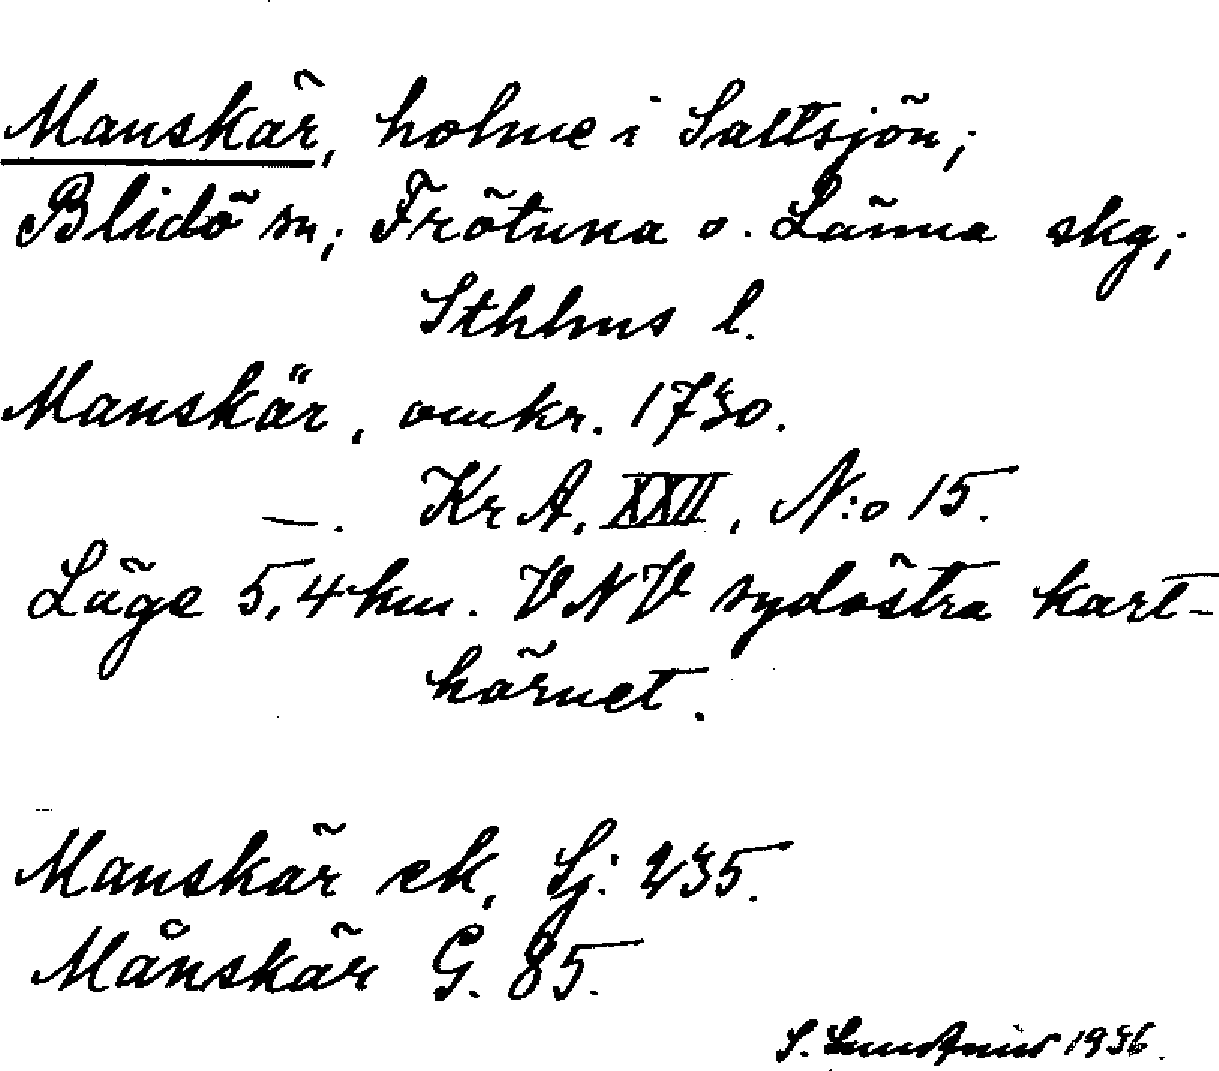 Manskär, holme i Saltsjön;
Blidö sn; Frötuna o. Länna skg;
Sthlms l.
Manskär, omkr. 1730.
—. Kr A. XXII, N:o 15.
Läge 5,4 km. VNV sydöstra kart-
hörnet.
Manskär ek, Sj: 235.
Månskär G. 85.
S. 1936.